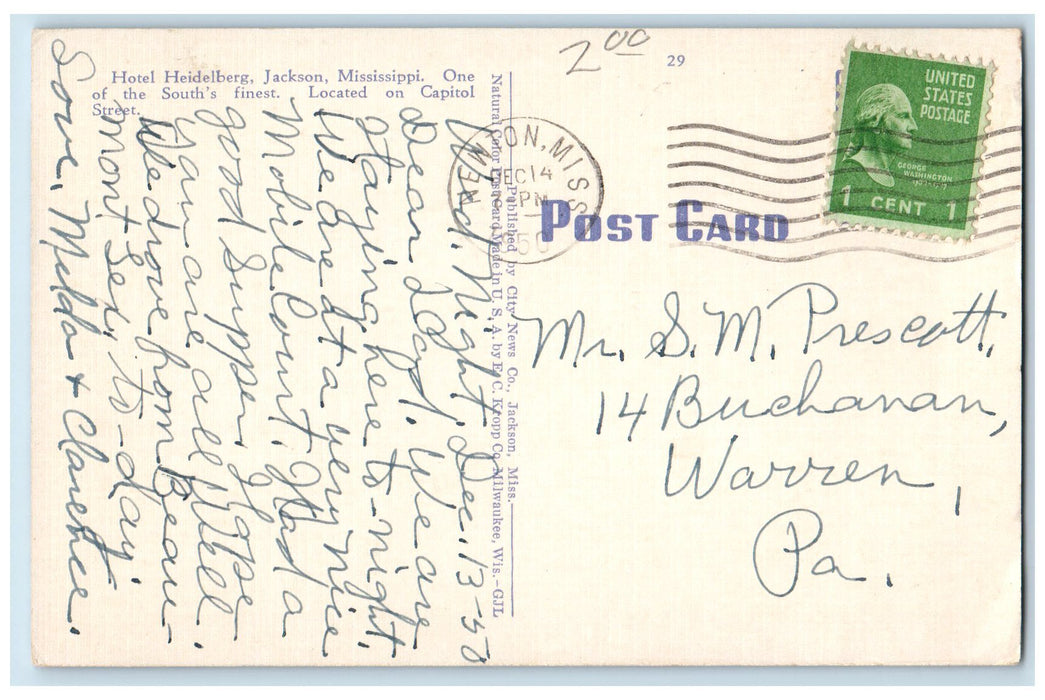 Hotel Heidelberg, Jackson, Mississippi. One
of the South's finest. Located on Capitol
Street.
Wed. Night, Dec. 13-50
Dear Dad, We are
staying here to-night.
We are at a very nice
Mobile Court. Had a
good supper, hope
you are all well.
We drove from Beau-
mont Tex, to-day.
Love, Milda + Clarence.
Natural Color Post Card Made in U. S. A. by E. C. Kropp Co., Milwaukee, Wis.-GJL
Published by City News Co., Jackson, Miss.
2 00
29
NEWTON, MISS.
DEC 14
PM
1950
UNITED
STATES
POSTAGE
GEORGE
WASHINGTON
1 CENT 1
POST CARD
Mr. S. M. Prescott,
14 Buchanan,
Warren,
Pa.